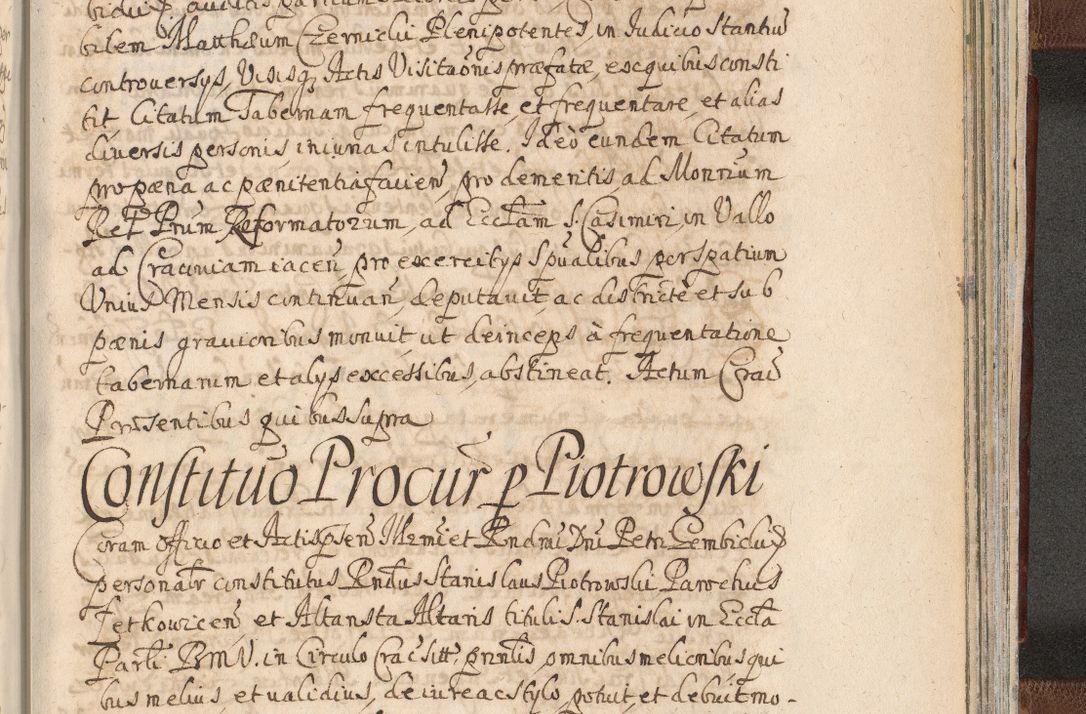 bilem Matthæum Czernicki Plenipotentes, in Judicio Stantiũ
controversÿs, Visisq; Actis Visitaõnis præfatæ, exquibus consti
tit, Citatum Tabernam frequentasse, et frequentare, et alias
diversis personis, iniurias intulisse. Ideò eundem Citatum
pro pæna ac pænitentia facien̄, pro demeritis ad Monrium
RefP Prum Reformatorum, ad Eccl̄am S. Casimiri, in Vallo
ad Cracoviam iacen̄, pro exercitÿs Spũalibus per spatium
Unius Mensis continuan̄, deputavit, ac districtè et sub
pænis gravioribus monuit, ut deinceps à frequentatione
tabernarum et alÿs excessibus, abstineat. Actum Crac̄
Præsentibus quibus supra
Constituõ Procur̃ p Piotrowski
Coram officio et Actis p̃sen̄ Illr̃mi et Rñdmi Dñi Petri Gembicki &
personalr̃ constitutus Rñdus Stanislaus Piotrowski Parochus
Jetkovicen̄, et Altarista Altaris tituli S. Stanislai in Eccl̄a
Parl̄i BMV. in Circulo Crac̄ sitt: p̃ntĩs omnibus melioribus qui
bus melius, et validius, de iure ac stylo, potuit, et debuit mo-